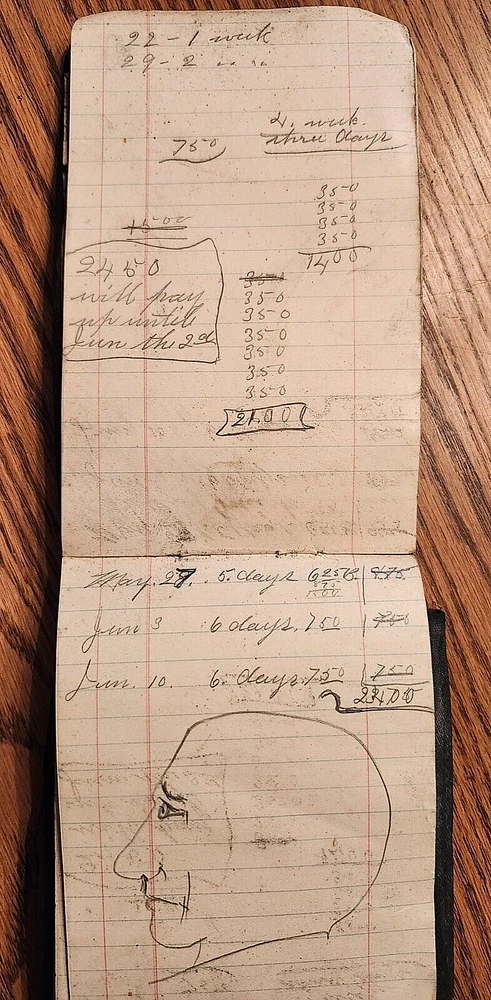 22 - 1 week
29 - 2 " "
4. week
three days
750
350
350
350
350
1400
1500
2450
will pay
up until
Jun the 2d
350
350
350
350
350
350
350
2100
May 27. 5. days 625
Jun 3 6 days. 750 750
Jun. 10. 6. days. 750 750